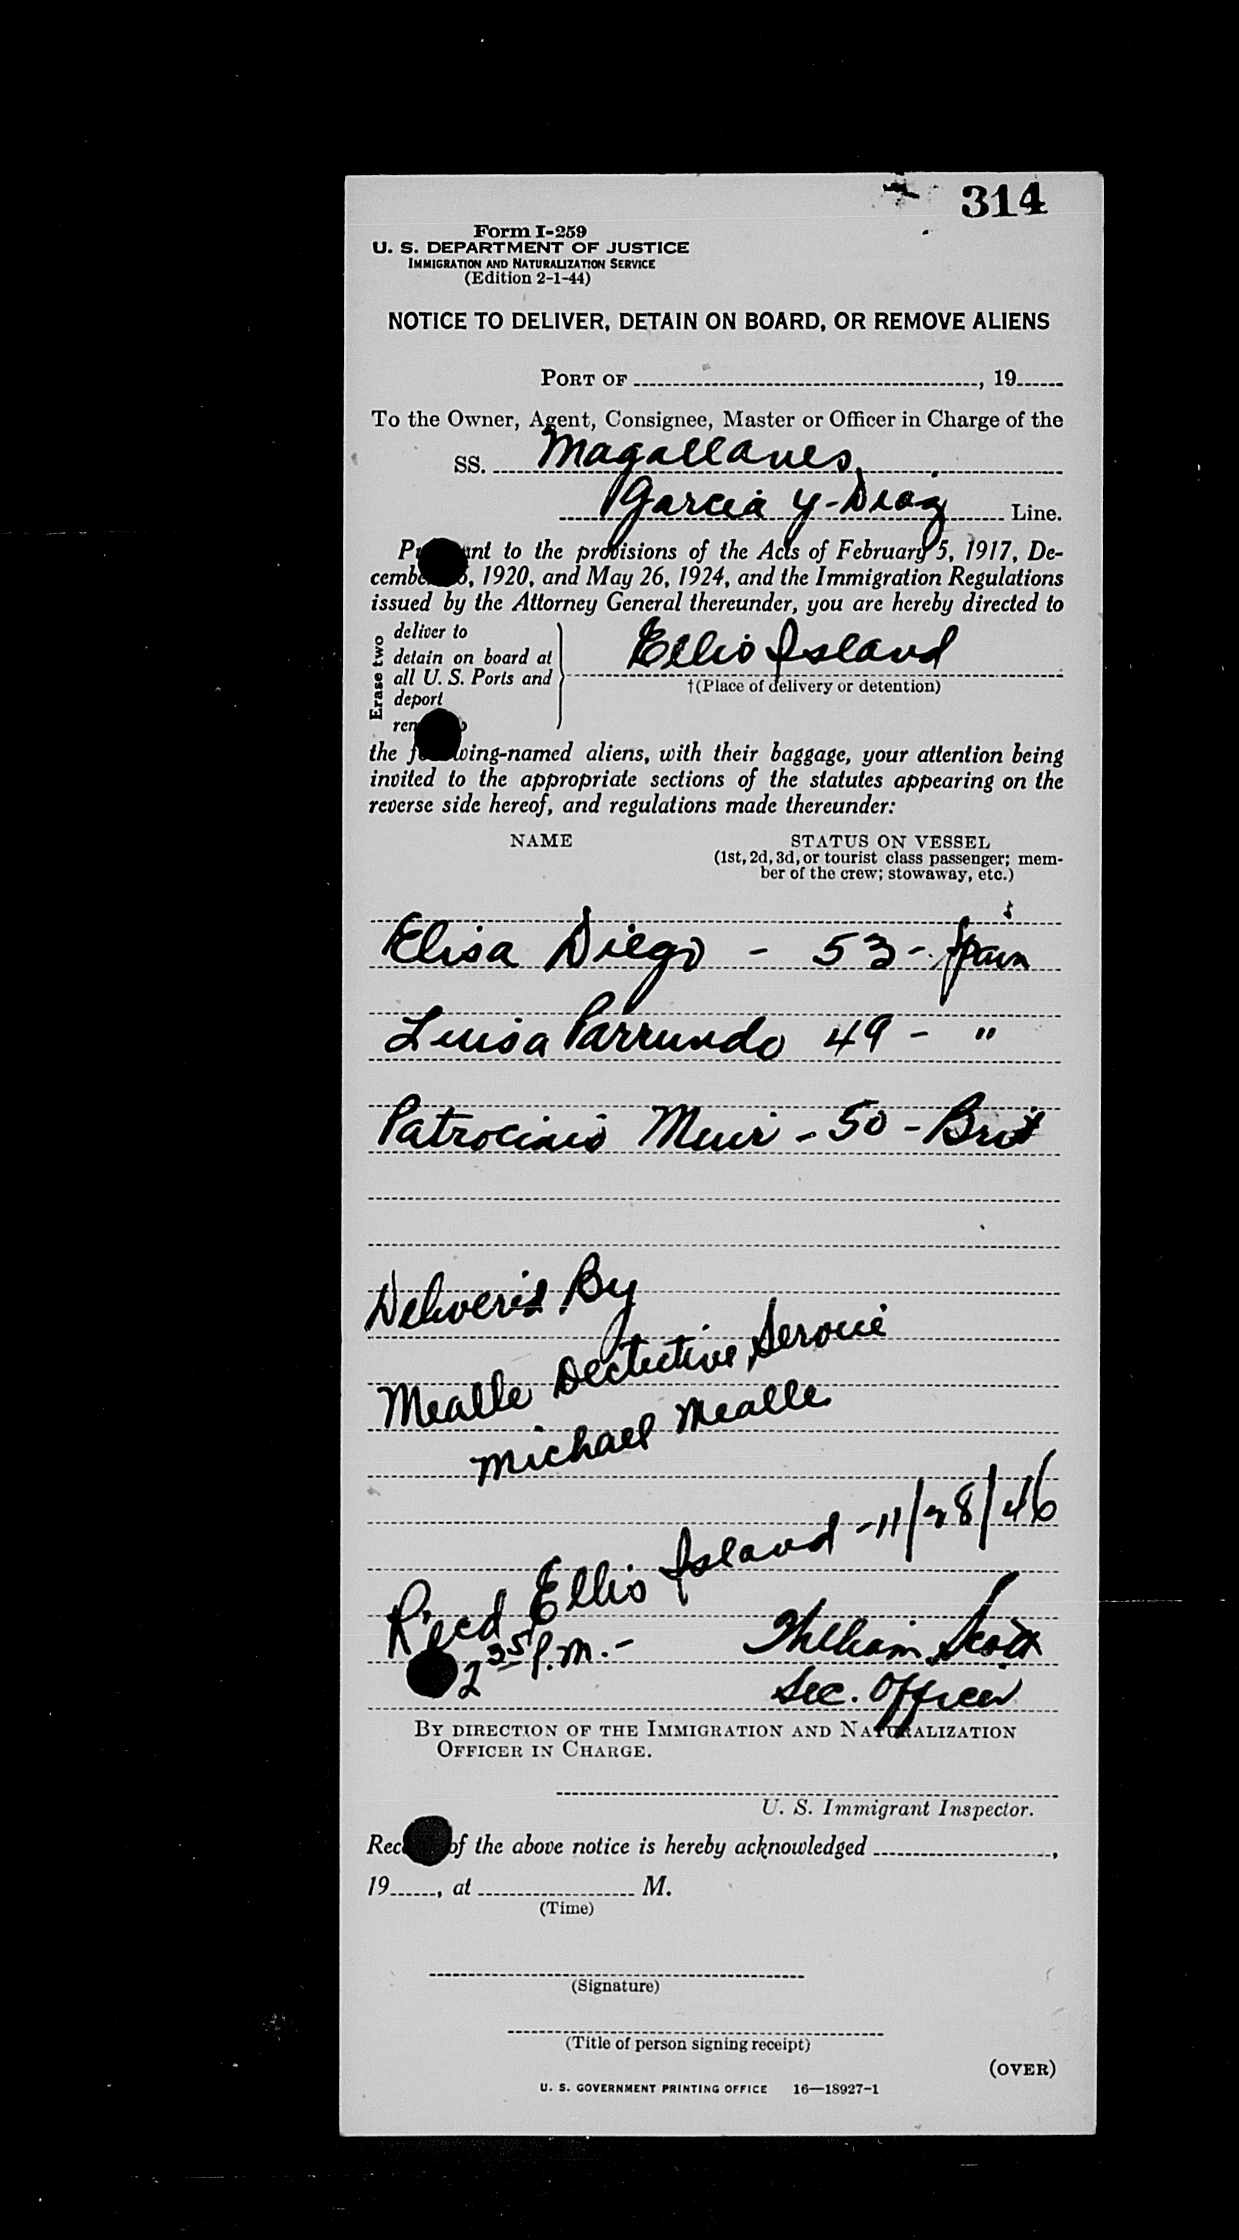 314
Form I-259
U. S. DEPARTMENT OF JUSTICE
IMMIGRATION AND NATURALIZATION SERVICE
(Edition 2-1-44)
NOTICE TO DELIVER, DETAIN ON BOARD, OR REMOVE ALIENS
PORT OF , 19
To the Owner, Agent, Consignee, Master or Officer in Charge of the
SS. Magallanes
Garcia y-Diaz Line.
to the provisions of the Acts of February 5, 1917, De-
1920, and May 26, 1924, and the Immigration Regulations
issued by the Attorney General thereunder, you are hereby directed to
Erase two
deliver to
detain on board at
all U. S. Ports and
deport
Ellis Island
†(Place of delivery or detention)
the aliens, with their baggage, your attention being
invited to the appropriate sections of the statutes appearing on the
reverse side hereof, and regulations made thereunder:
NAME STATUS ON VESSEL
(1st, 2d, 3d, or tourist class passenger; mem-
ber of the crew; stowaway, etc.)
Elisa Diego - 53 - Spain
Luisa Parrundo 49 - "
Patrocinio Muir - 50 - Brit
By
Mealle Dectective Service
Michael Mealle
Ellis Island - 11/28/46
2 35 P.M. -
William Scott
Sec. Officer
BY DIRECTION OF THE IMMIGRATION AND NATURALIZATION
OFFICER IN CHARGE.
U. S. Immigrant Inspector.
of the above notice is hereby acknowledged ,
19 , at M.
(Time)
(Signature)
(Title of person signing receipt)
(OVER)
U. S. GOVERNMENT PRINTING OFFICE 16—18927-1